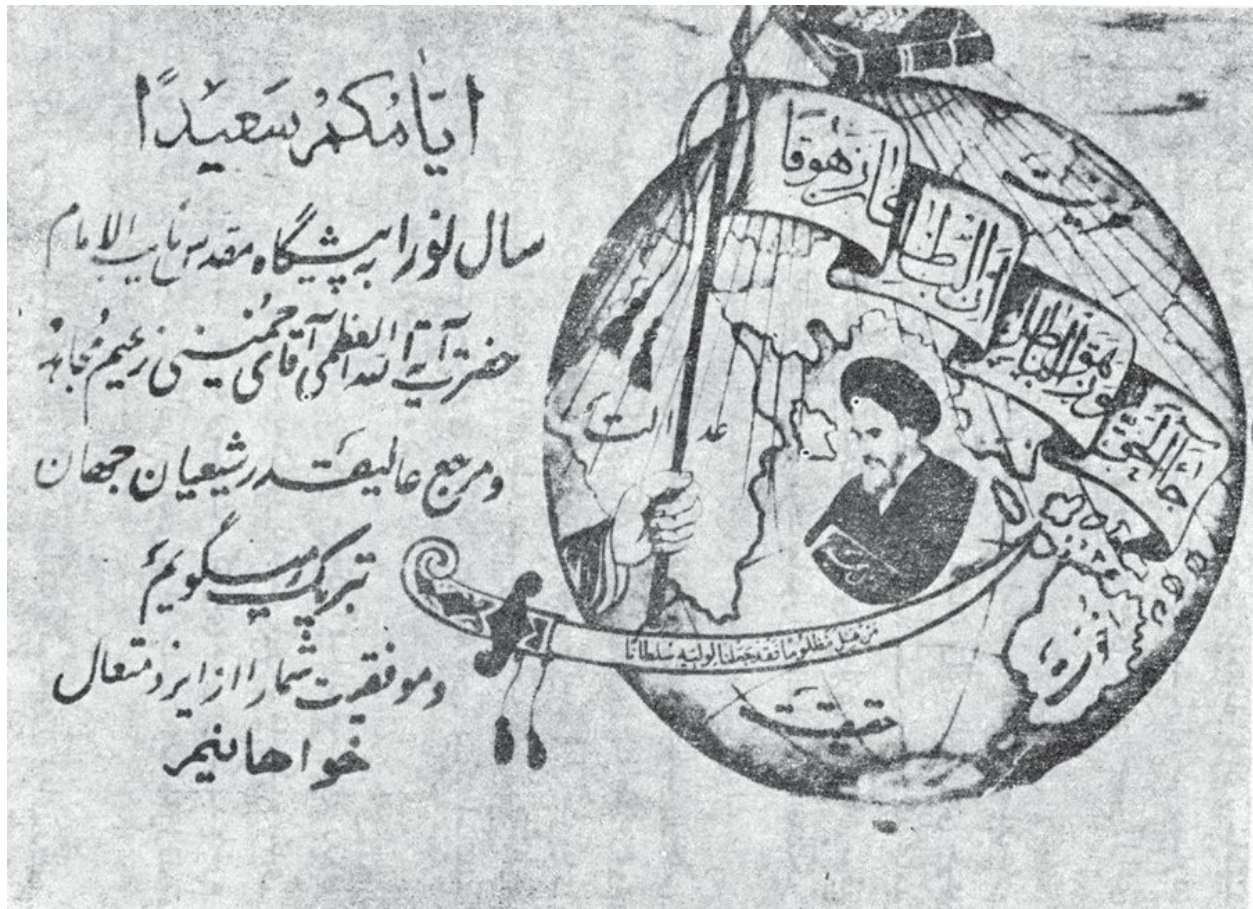 ایّامُکُمْ سَعیٖدًا
سال نو را به پیشگاه مقدس نایب الامام
حضرت آیة الله العظمی آقای خُمینی زعیم مُجاهد
و مرجع عالیقدر شیعیان جهان
تبریک میگویم
و موفقیت شما را از ایزد متعال
خواهانیم
کان زَهُوقًا
اِنّ الباطِل
زهَقَ الباطل
جاءَ الحَقّ
عدالت
مَن قُتِلَ مَظلُومًا فَقَد جَعَلنا لِوَلِیّهِ سُلطانًا